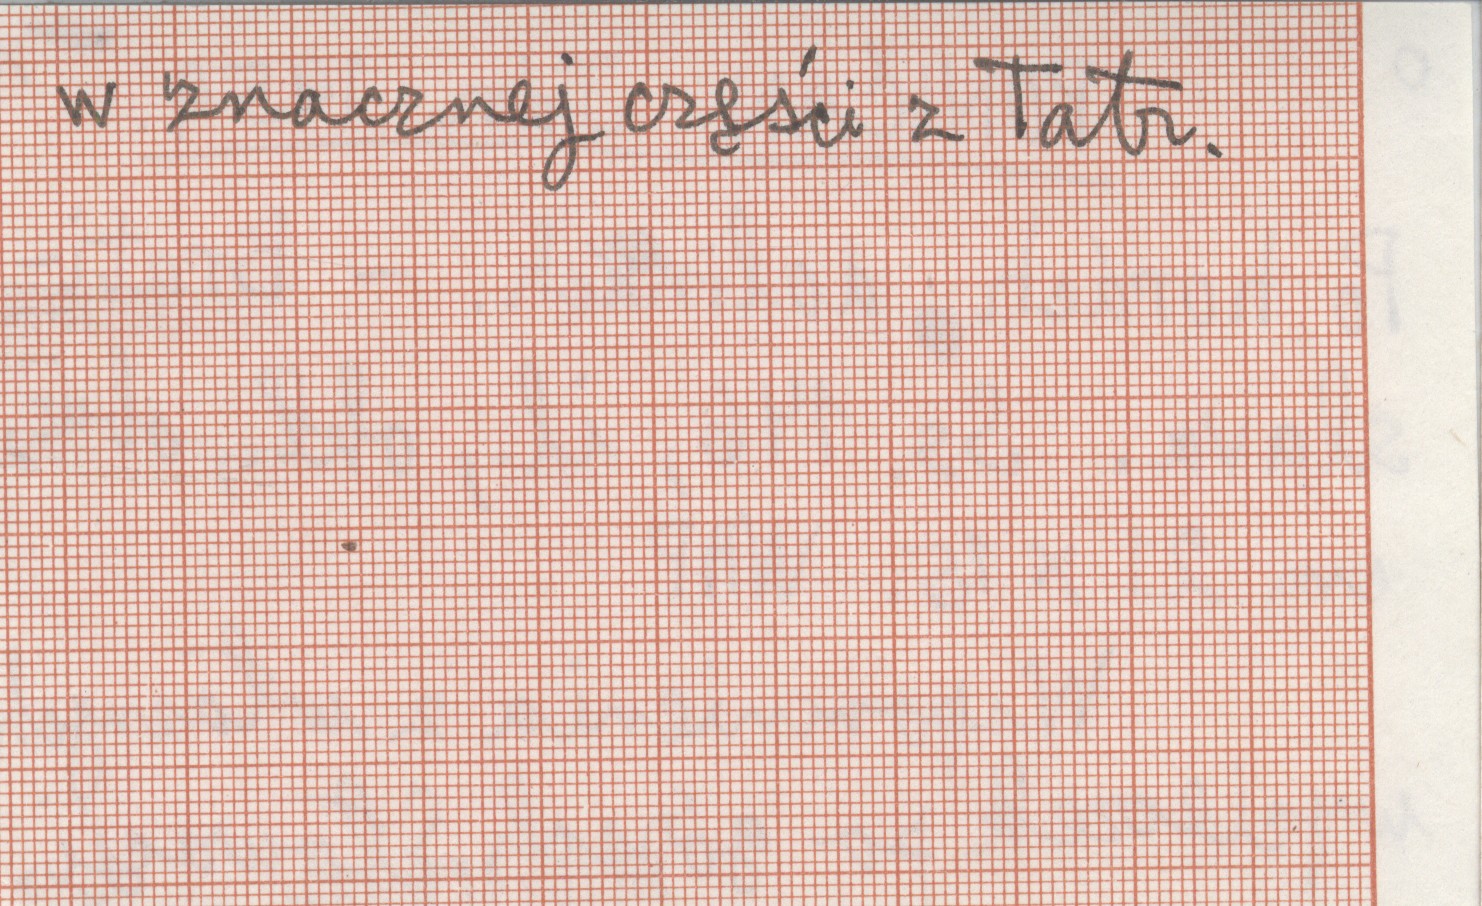 w znacznej części z Tatr.